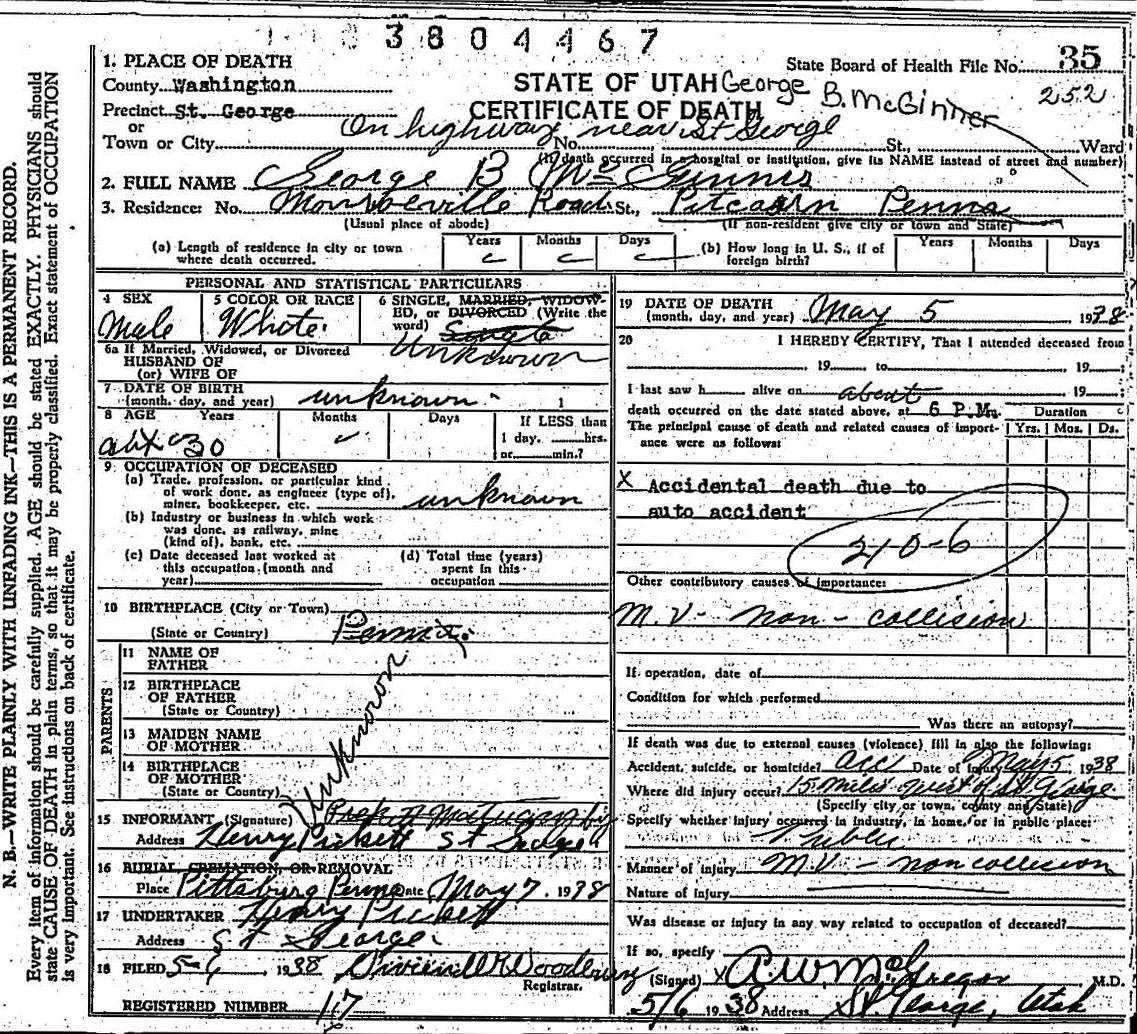 3804467
1. PLACE OF DEATH
County Washington
Precinct St. George
or
Town or City On highway near St George No. St., Ward
State Board of Health File No. 35
252
STATE OF UTAH
CERTIFICATE OF DEATH
George B. McGinner
(If death occurred in a hospital or institution, give its NAME instead of street and number)
2. FULL NAME George B McGinnis
3. Residence: No. Monroeville Road St., Pitcairn Penna
(Usual place of abode) (If non-resident give city or town and State)
(a) Length of residence in city or town where death occurred. Years Months Days
(b) How long in U. S., if of foreign birth? Years Months Days
PERSONAL AND STATISTICAL PARTICULARS
4 SEX Male
5 COLOR OR RACE White
6 SINGLE, MARRIED, WIDOW-
ED, or DIVORCED (Write the
word) Single
Unknown
6a If Married, Widowed, or Divorced
HUSBAND OF
(or) WIFE OF
7 DATE OF BIRTH
(month, day, and year) unknown 1
8 AGE Years Months Days If LESS than
1 day, hrs.
or min.?
abt 30
9 OCCUPATION OF DECEASED
(a) Trade, profession, or particular kind
of work done, as engineer (type of),
miner, bookkeeper, etc. unknown
(b) Industry or business in which work
was done, as railway, mine
(kind of), bank, etc.
(c) Date deceased last worked at
this occupation (month and
year)
(d) Total time (years)
spent in this
occupation
10 BIRTHPLACE (City or Town)
(State or Country) Penna
PARENTS
11 NAME OF
FATHER
12 BIRTHPLACE
OF FATHER
(State or Country)
13 MAIDEN NAME
OF MOTHER
14 BIRTHPLACE
OF MOTHER
(State or Country)
Unknown
15 INFORMANT (Signature)
Address Henry Pickett St George
16 BURIAL, CREMATION, OR REMOVAL
Place Pittsburg Penna Date May 7, 1938
17 UNDERTAKER Henry Pickett
Address St George
18 FILED 5-6, 1938 Vivien W Woodbury
Registrar.
REGISTERED NUMBER 17
19 DATE OF DEATH
(month, day, and year) May 5 1938
20 I HEREBY CERTIFY, That I attended deceased from
19 to 19
I last saw h alive on about 19
death occurred on the date stated above, at 6 P.M.
The principal cause of death and related causes of import-
ance were as follows:
Duration
Yrs. Mos. Ds.
X Accidental death due to
auto accident
210-6
Other contributory causes of importance:
M.V - non - collision
If operation, date of
Condition for which performed
Was there an autopsy?
If death was due to external causes (violence) fill in also the following:
Accident, suicide, or homicide? acc Date of injury May 5 1938
Where did injury occur? 15 miles west of St George
(Specify city or town, county and State)
Specify whether injury occurred in industry, in home, or in public place:
Public
Manner of injury M.V - non collision
Nature of injury
Was disease or injury in any way related to occupation of deceased?
If so, specify
(Signed) X A.W. McGregor M.D.
5/6 1938 Address St. George, Utah
N. B.—WRITE PLAINLY WITH UNFADING INK—THIS IS A PERMANENT RECORD.
Every item of information should be carefully supplied. AGE should be stated EXACTLY. PHYSICIANS should
state CAUSE OF DEATH in plain terms, so that it may be properly classified. Exact statement of OCCUPATION
is very important. See instructions on back of certificate.